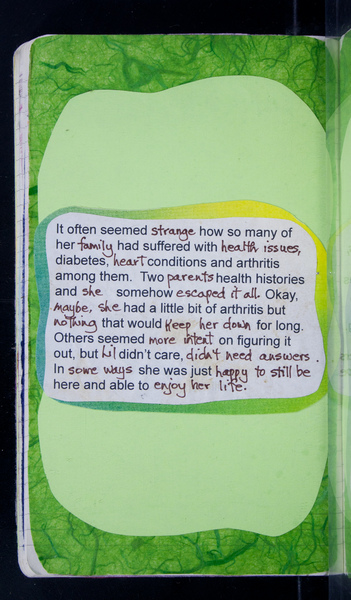 It often seemed strange how so many of
her family had suffered with health issues,
diabetes, heart conditions and arthritis
among them. Two parents health histories
and she somehow escaped it all. Okay,
maybe, she had a little bit of arthritis but
nothing that would keep her down for long.
Others seemed more intent on figuring it
out, but Lil didn't care, didn't need answers.
In some ways she was just happy to still be
here and able to enjoy her life.